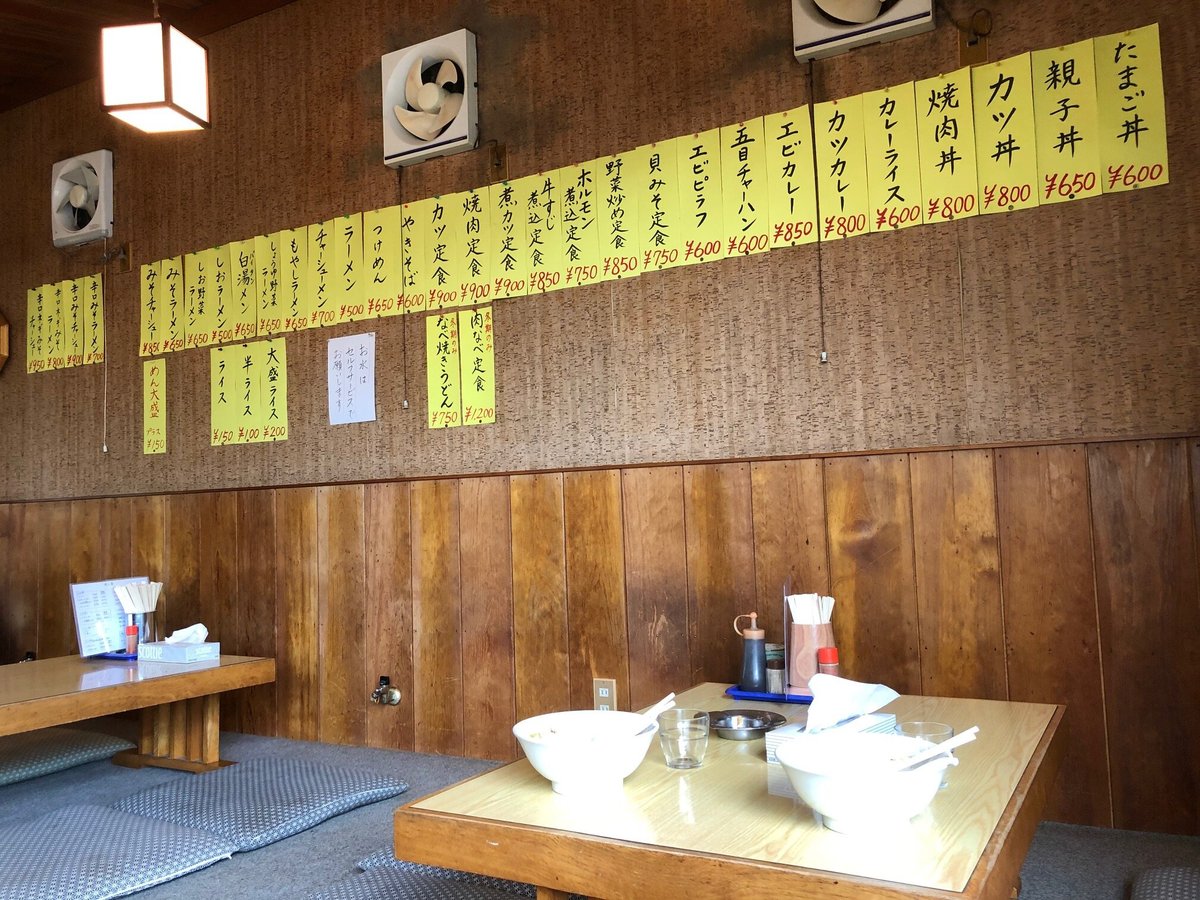 たまご丼
¥600
親子丼
¥650
カツ丼
¥800
焼肉丼
¥800
カレーライス
¥600
カツカレー
¥800
エビカレー
¥850
五目チャーハン
¥600
エビピラフ
¥600
貝みそ定食
¥750
野菜炒め定食
¥850
ホルモン
煮込定食
¥750
牛すじ
煮込定食
¥850
煮カツ定食
¥900
焼肉定食
¥900
カツ定食
¥900
やきそば
¥600
つけめん
¥650
ラーメン
¥500
チャーシューメン
¥700
もやしラーメン
¥650
しょうゆ野菜
ラーメン
¥650
白湯メン
¥650
しおラーメン
¥500
しお野菜
ラーメン
¥650
みそラーメン
みそチャーシュー
¥850
辛口みそラーメン
¥700
辛口みそチャーシュー
¥900
辛口ネギみそ
ラーメン
¥800
辛口ネギみそ
チャーシュー
¥950
冬期のみ
肉なべ定食
¥1,200
冬期のみ
なべ焼きうどん
¥750
お水は
セルフサービスで
お願いします
大盛ライス
¥200
半ライス
¥100
ライス
¥150
めん大盛
プラス
¥150
scottie